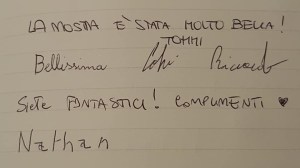 LA MOSTRA E' STATA MOLTO BELLA!
TOMMI
Bellissima Riccardo
SIETE FANTASTICI! COMPLIMENTI ♥
Nathan